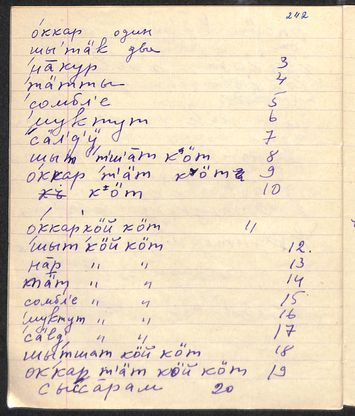 242
о́ккар один
шы́тäк два
на̄кур 3
тä́ттты 4
со́мбле 5
му́ктут 6
сäлд'ӱ 7
шыт т'äт кöт 8
о́ккар т'äт кöт 9
кöт 10
о́ккар кöй кöт "
шыт кöй кöт 12.
на̄р " " 13
тäт " " 14
сомбле " " 15
муктут " " 16
сäлд " " 17
шыт'тшат кöй кöт 18
оккар т'äт кöй кöт 19
сы́са̄рам 20